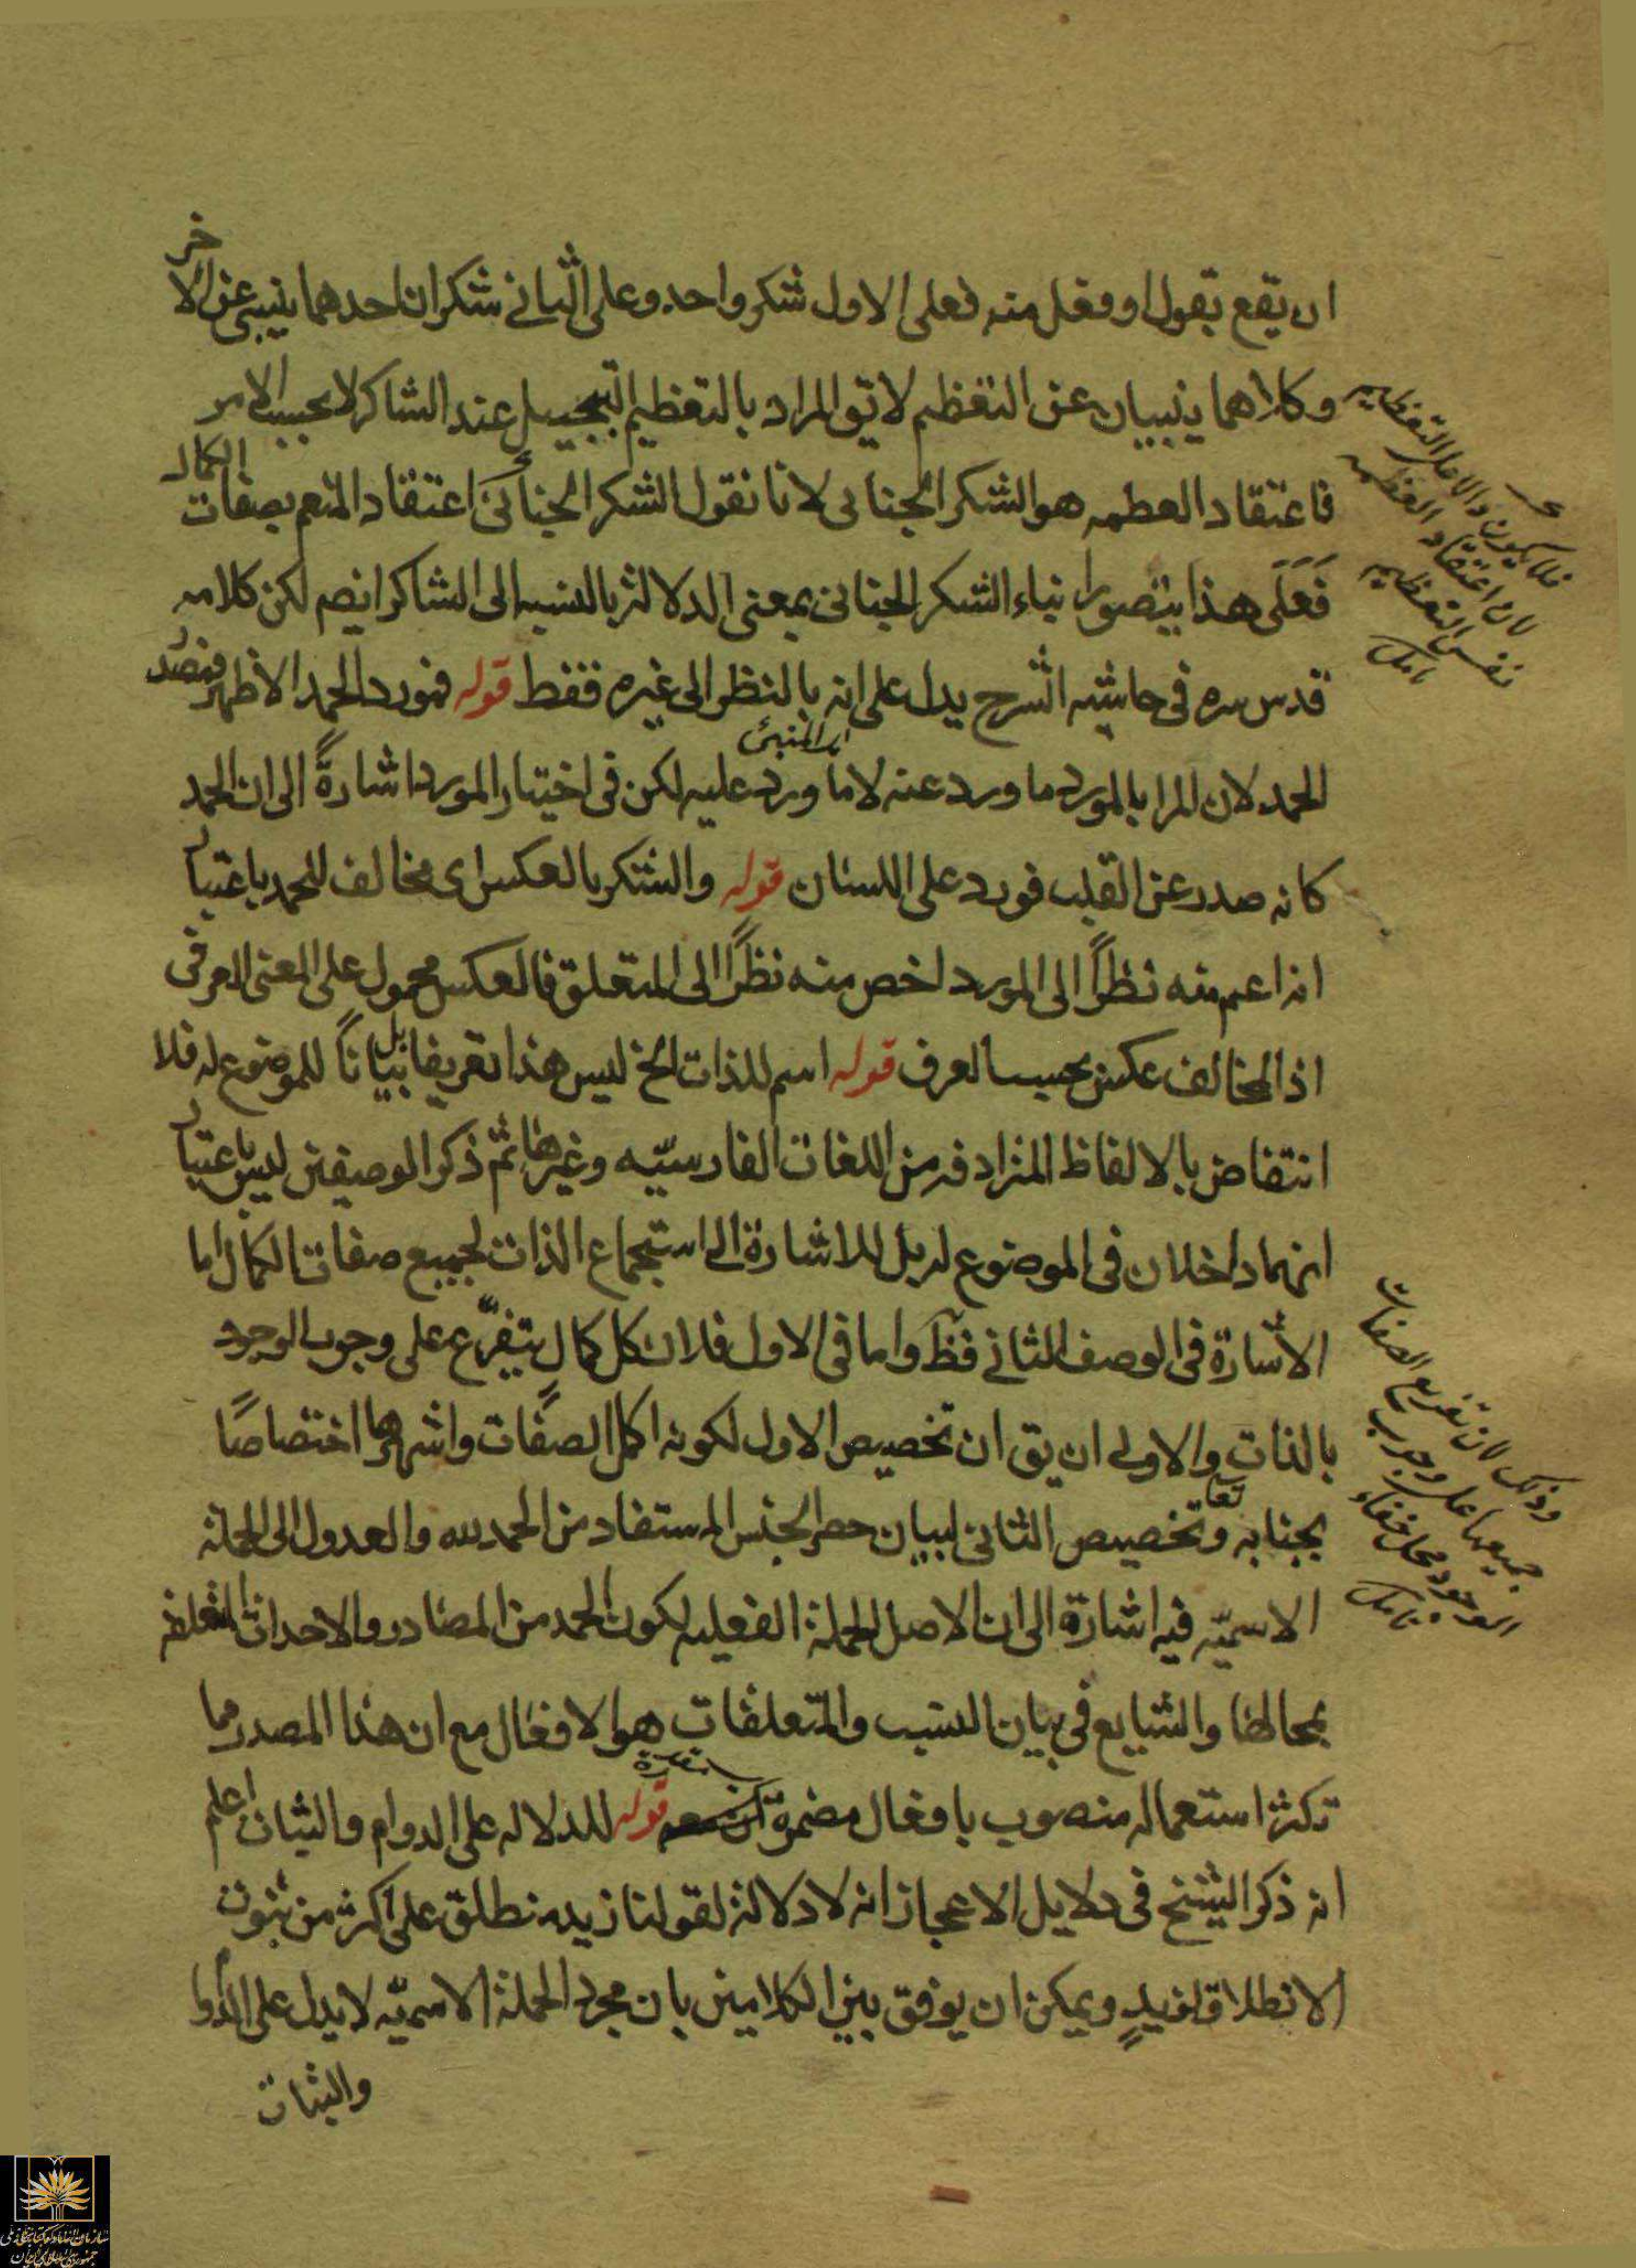 ان يقع بقول او فعل منه فعلى الاول شكر واحد وعلى الثانى شكران احدهما ينبئ عن الاخر
وكلاهما ينبيان عن التعظيم لا يق المراد بالتعظيم التبجيل عند الشاكر لا بحسب الامر
فاعتقاد العظمه هو الشكر الجنانى لانا نقول الشكر الجنائى اعتقاد المنعم بصفات الكمال
فَعَلَى هذا يتصور انباء الشكر الجنانى بمعنى الدلالة بالنسبه الى الشاكر ايضم لكن كلامه
قدس سره فى حاشيته الشرح يدل على انه بالنظر الى غيره فقط قوله فمورد الحمد الاظهر فمصدر
الحمد لان المرا بالمورد ما ورد عنه لا ما ورد عليه لكن فى اختيار المورد اشارةً الى ان الحمد
اى المنبئ
كانه صدر عن القلب فورد على اللسان قوله والشكر بالعكس اى مخالف للحمد باعتبار
انه اعم منه نظراً الى المورد اخص منه نظراً الى المتعلق فالعكس محمول على المعنى العرفى
اذ المخالف عكس بحسب العرف قوله اسم للذات الخ ليس هذا تعريفا بل بياناً للموضوع له فلا
انتقاض بالالفاظ المترادفه من اللغات الفارسيّه وغيرها ثم ذكر الوصيفين ليس باعتبار
انهما داخلان فى الموضوع له بل للاشارة الى استجماع الذات لجميع صفات الكمال اما
الاشارة فى الوصف الثانى فظ واما فى الاول فلان كل كمال يتفرّع على وجوب الوجود
بالذات والاولى ان يق ان تخصيص الاول لكونه اكمل الصفات واشهرها اختصاصًا
بجنابه تعا وتخصيص الثانى لبيان حصر الجنس المستفاد من الحمد لله والعدول الى الجملة
الاسميّه فيه اشارة الى ان الاصل الجملة الفعليه لكون الحمد من المصادر والاحداث المتعلقه
بمحالها والشايع فى بيان النسب والمتعلقات هو الافعال مع ان هذا المصدر مما
تكثر استعماله منصوب بافعال مضمرة قوله للدلاله على الدوام والثبات اعلم
انه ذكر الشيخ فى دلايل الاعجاز انه لا دلالة لقولنا زيد منطلق على اكثر من ثبوت
الانطلاق لزيدٍ ويمكن ان يوفق بين الكلامين بان مجرد الجملة الاسميّه لا يدل على الدوا
والثبات
فلا يكون دالا على التعظيم
لان اعتقاد العظمه
نفس التعظيم
تامل
وذلك لان تفريع الصفات
جميعها على وجوب
الوجود محل خفاء
تامل
سازمان اسناد و کتابخانه ملی
جمهوری اسلامی ایران